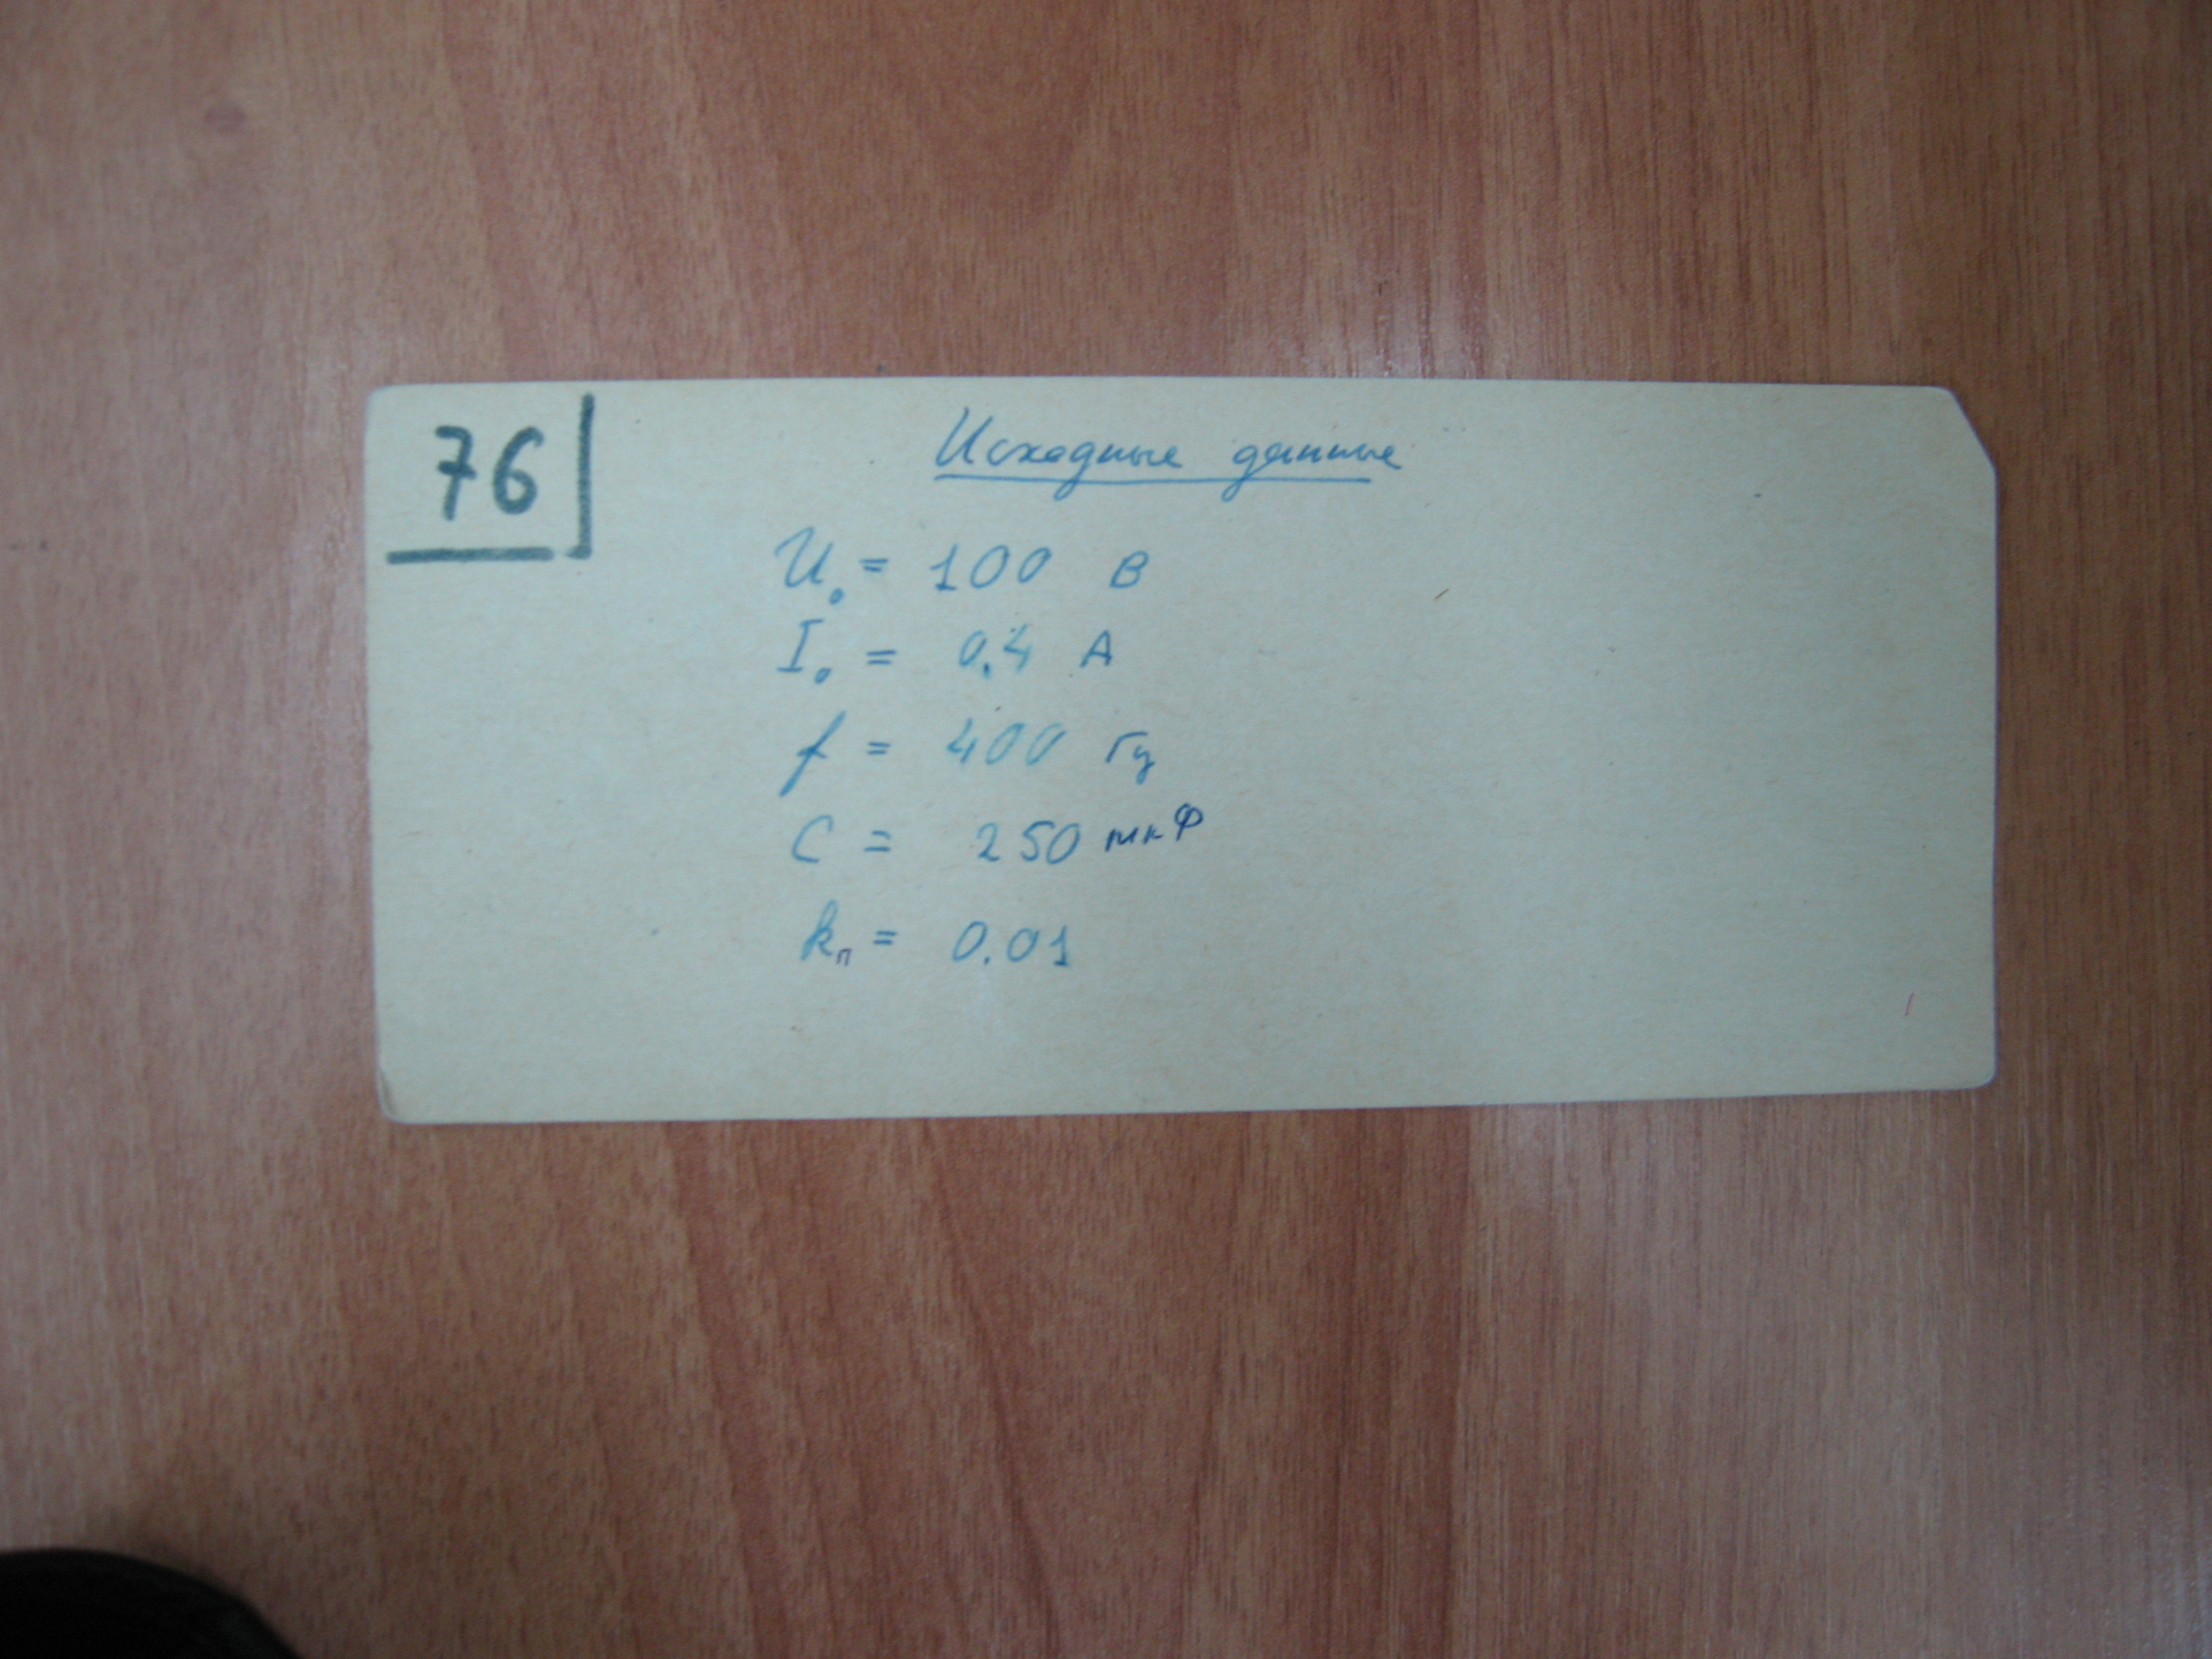 76
Исходные данные
U₀ = 100 В
I₀ = 0.4 А
f = 400 Гц
C = 250 мкФ
kп = 0.01